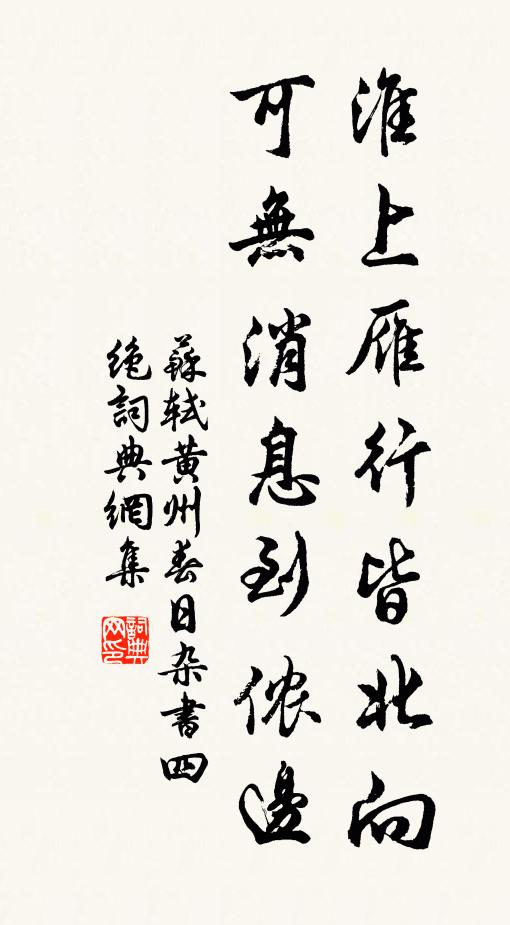 淮上雁行皆北向
可無消息到儂邊
蘇軾黃州春日杂書四
絶詞典網集
詞典网印